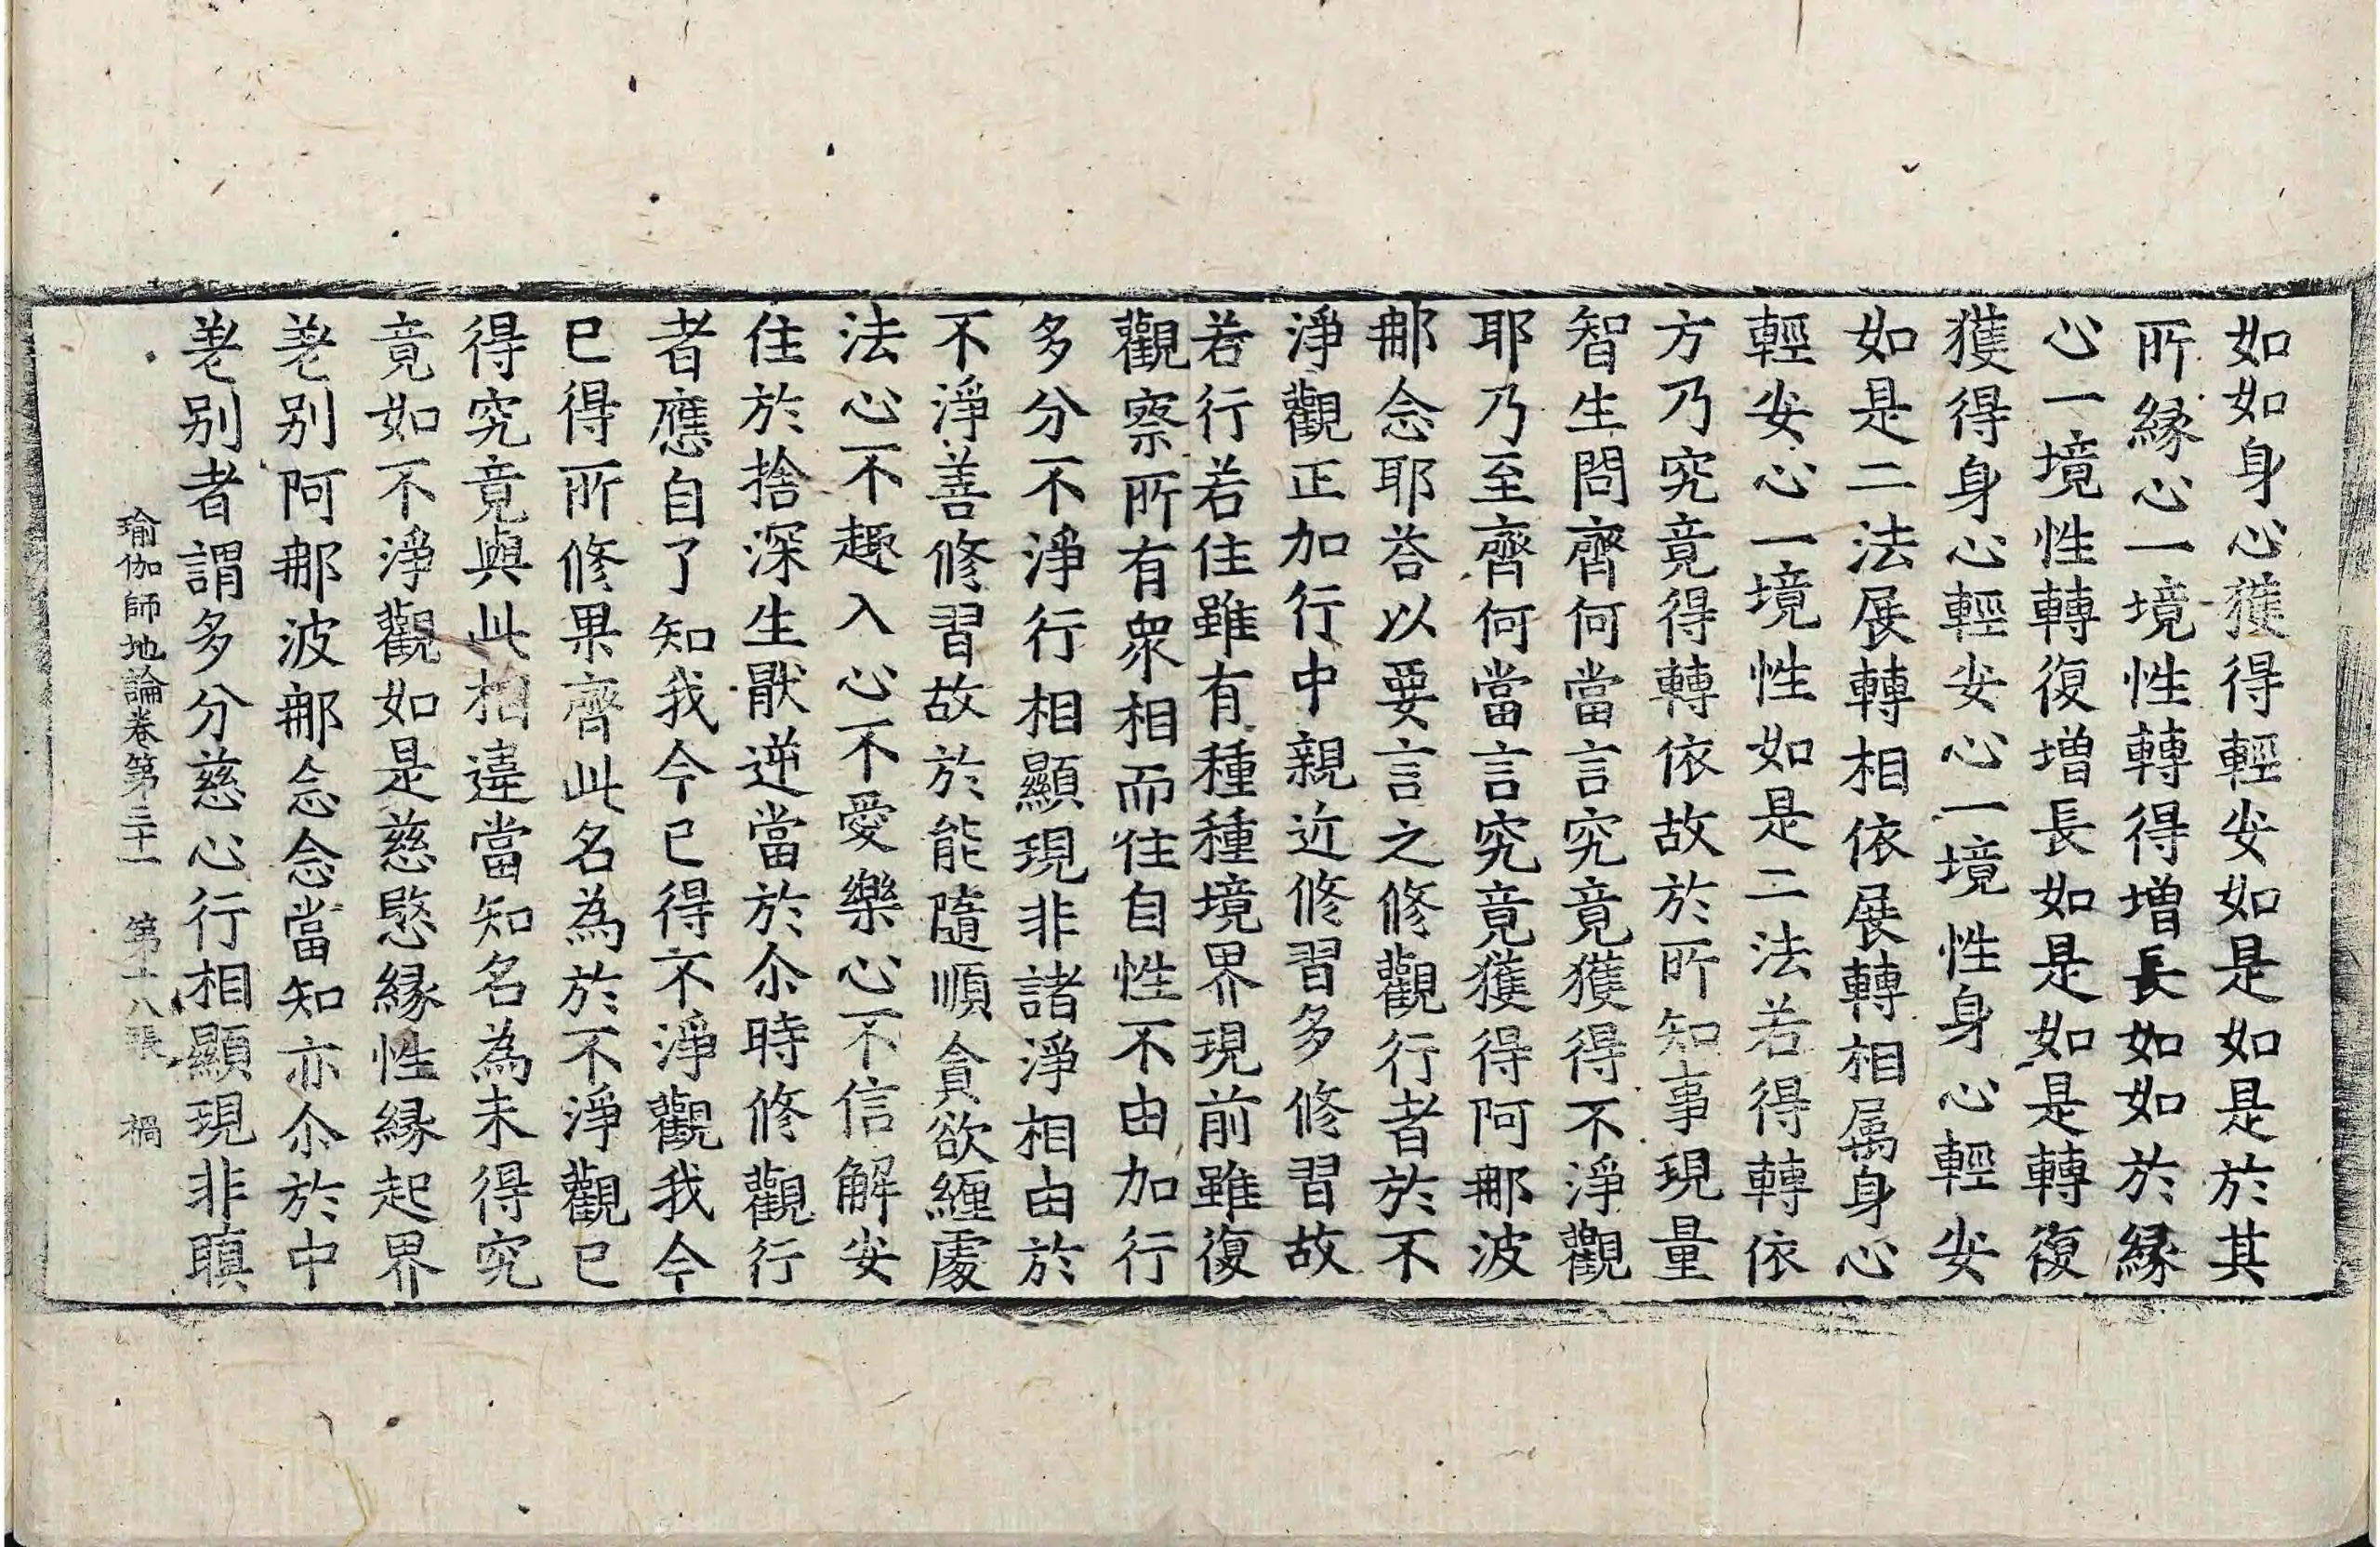 如如身心獲得輕安如是如是於其
所縁心一境性轉得增長如如於縁
心一境性轉復增長如是如是轉復
獲得身心輕安心一境性身心輕安
如是二法展轉相依展轉相属身心
輕安心一境性如是二法若得轉依
方乃究竟得轉依故於所知事現量
智生問齊何當言究竟獲得不淨觀
耶乃至齊何當言究竟獲得阿那波
那念耶荅以要言之修觀行者於不
淨觀正加行中親近修習多修習故
若行若住雖有種種境界現前雖復
觀察所有衆相而住自性不由加行
多分不淨行相顯現非諸淨相由於
不淨善修習故於能隨順貪欲纏處
法心不趣入心不愛樂心不信解安
住於捨深生厭逆當於尒時修觀行
者應自了知我今已得不淨觀我今
已得所修果齊此名為於不淨觀已
得究竟與此相違當知名為未得究
竟如不淨觀如是慈愍縁性縁起界
差别阿那波那念念當知亦尒於中
差别者謂多分慈心行相顯現非瞋
瑜伽師地論卷第三十一 第十八張 禍